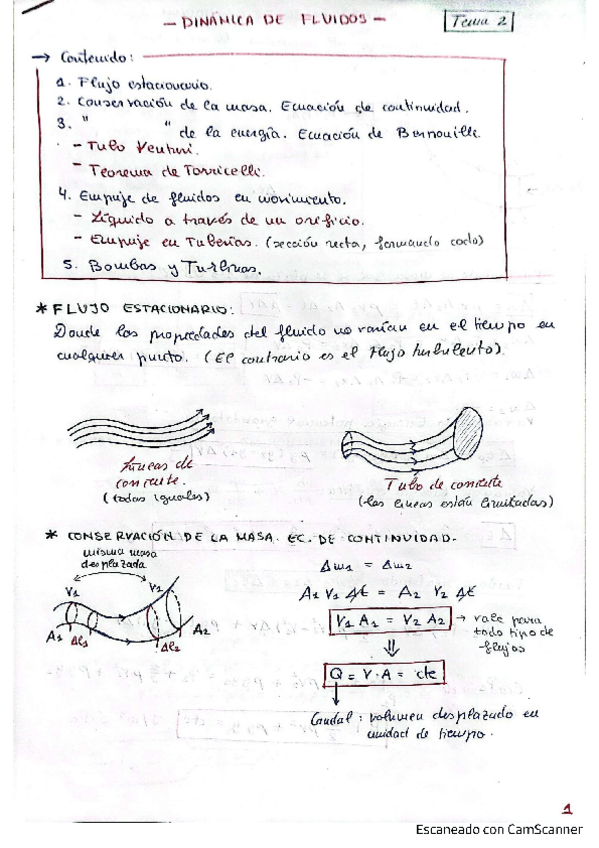 - DINÁMICA DE FLUIDOS -
Tema 2
→ Contenido:
1. Flujo estacionario.
2. Conservación de la masa. Ecuación de continuidad.
3. " " de la energía. Ecuación de Bernouilli.
- Tubo Venturi.
- Teorema de Torricelli.
4. Empuje de fluidos en movimiento.
- Líquido a través de un orificio.
- Empuje en Tuberías. (sección recta, formando codo)
5. Bombas y Turbinas.
* FLUJO ESTACIONARIO:
Donde las propiedades del fluido no varían en el tiempo en
cualquier punto. (El contrario es el Flujo turbulento).
Líneas de
corriente.
(todas iguales)
Tubo de corriente
(las líneas están limitadas)
* CONSERVACIÓN DE LA MASA. EC. DE CONTINUIDAD.
misma masa
desplazada
V1
V2
A1
Δl1
Δl2
A2
Δm1 = Δm2
A1 V1 Δt = A2 V2 Δt
V1 A1 = V2 A2 → vale para
todo tipo de
flujos
⇓
Q = V·A = cte
↓
Caudal: volumen desplazado en
unidad de tiempo.
1
Escaneado con CamScanner